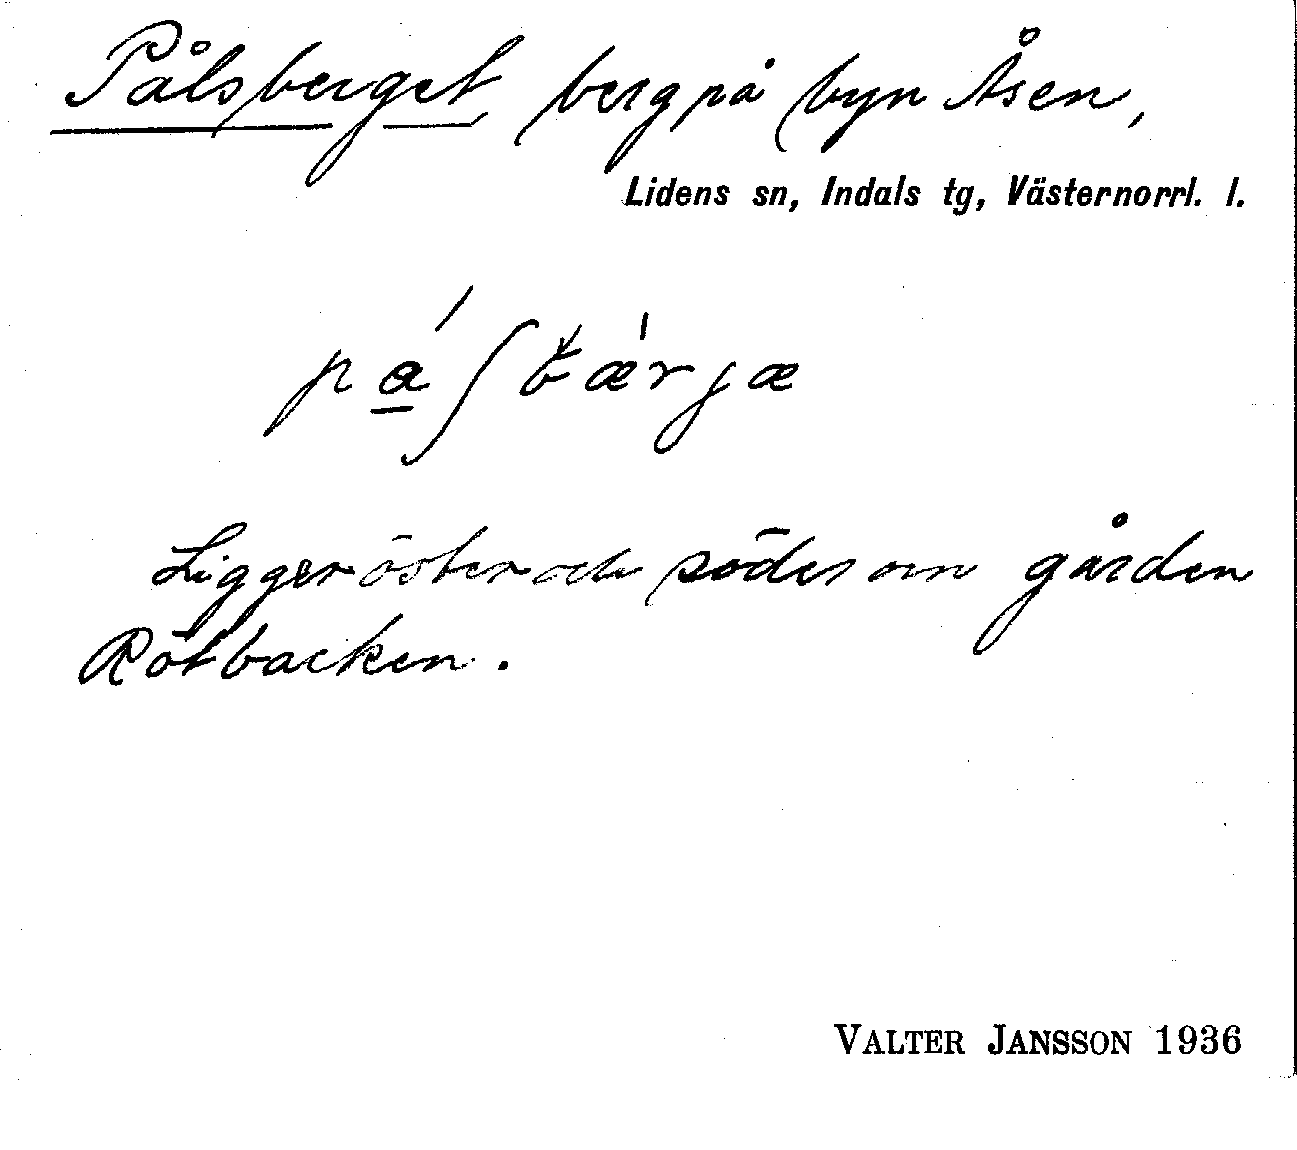 Pålsberget, berg på byn Åsen,
Lidens sn, Indals tg, Västernorrl. l.
Ligger öster och söder om gården
Rötbacken.
VALTER JANSSON 1936